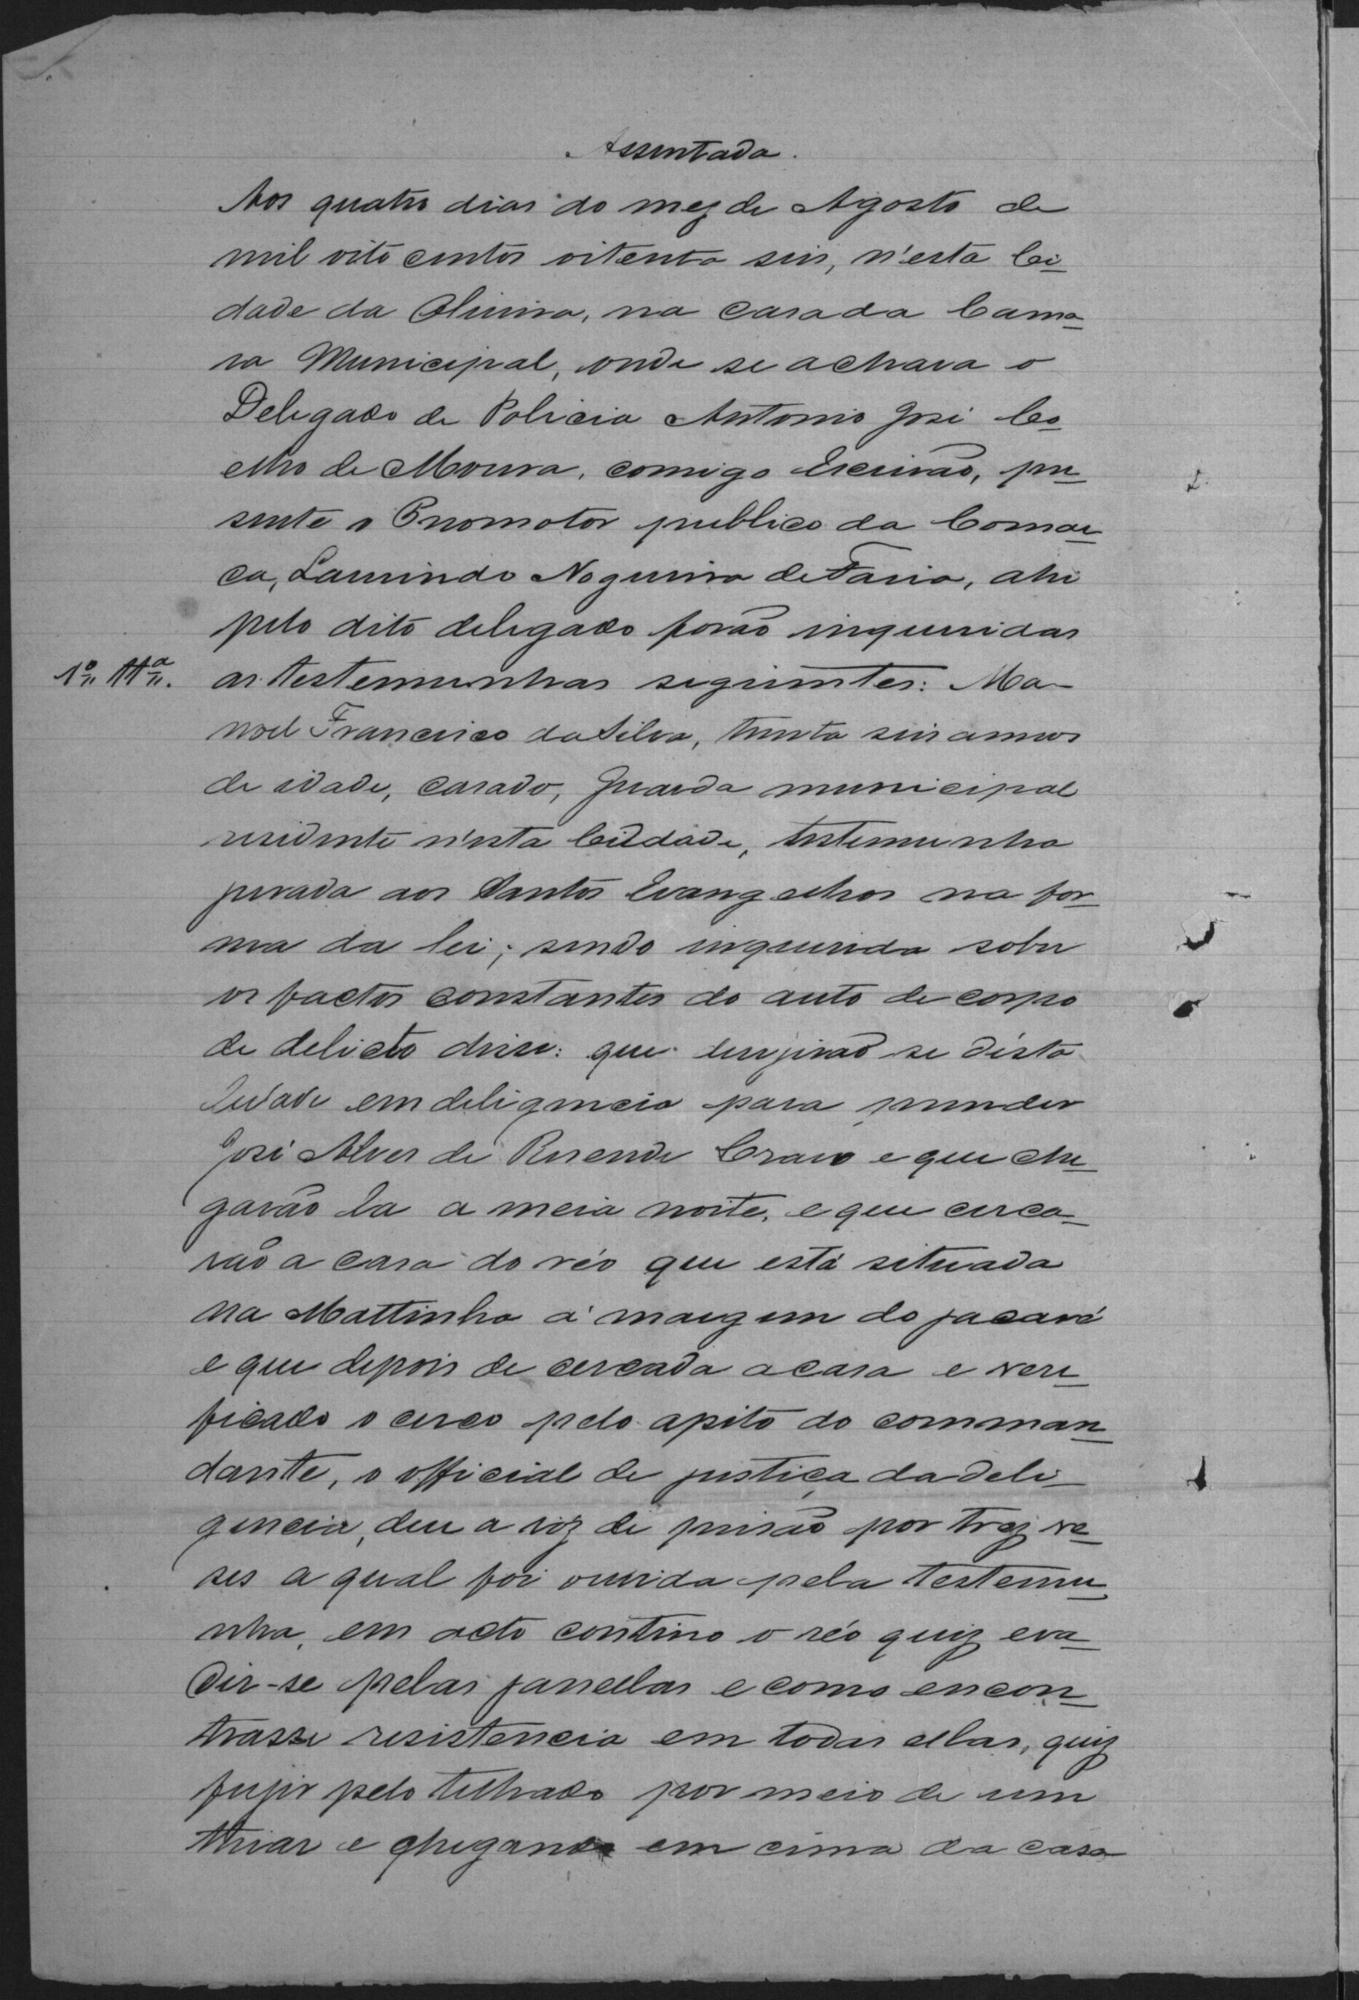 Assentada.
Aos quatro dias do mez de Agosto de
mil oito centos oitenta seis, n'esta Ci-
dade da Oliveira, na casa da Cama-
ra Municipal, onde se achava o
Delegado de Policia Antonio José Co-
elho de Moura, comigo Escrivão, pre-
sente o Promotor publico da Comar-
ca, Laurindo Nogueira de Faria, ahi
pelo dito delegado forão inqueridas
1ª Ttª. as testemunhas seguintes: Ma-
noel Francisco da Silva, trinta seis annos
de idade, casado, Guarda municipal
residente n'esta Cidade, testemunha
jurada aos Santos Evangelhos na for-
ma da lei; sendo inquerida sobre
os factos constantes do auto de corpo
de delicto disse: que derijirão se d'esta
Cidade em deligencia para prender
José Alves de Resende Cravo e que che-
garão la a meia noite, e que cerca-
rão a casa do réo que está situada
na Mattinha á margem do jacaré
e que depois de cercada a casa e veri-
ficado o cerco pelo apito do comman-
dante, o official de justiça da deli-
gencia, deu a voz de prisão por trez ve-
ses a qual foi ouvida pela testemu-
nha, em acto contino o réo quiz eva-
dir-se pelas janellas e como encon-
trasse resistencia em todas ellas, quiz
fujir pelo telhado por meio de um
thiar e chegando em cima da casa